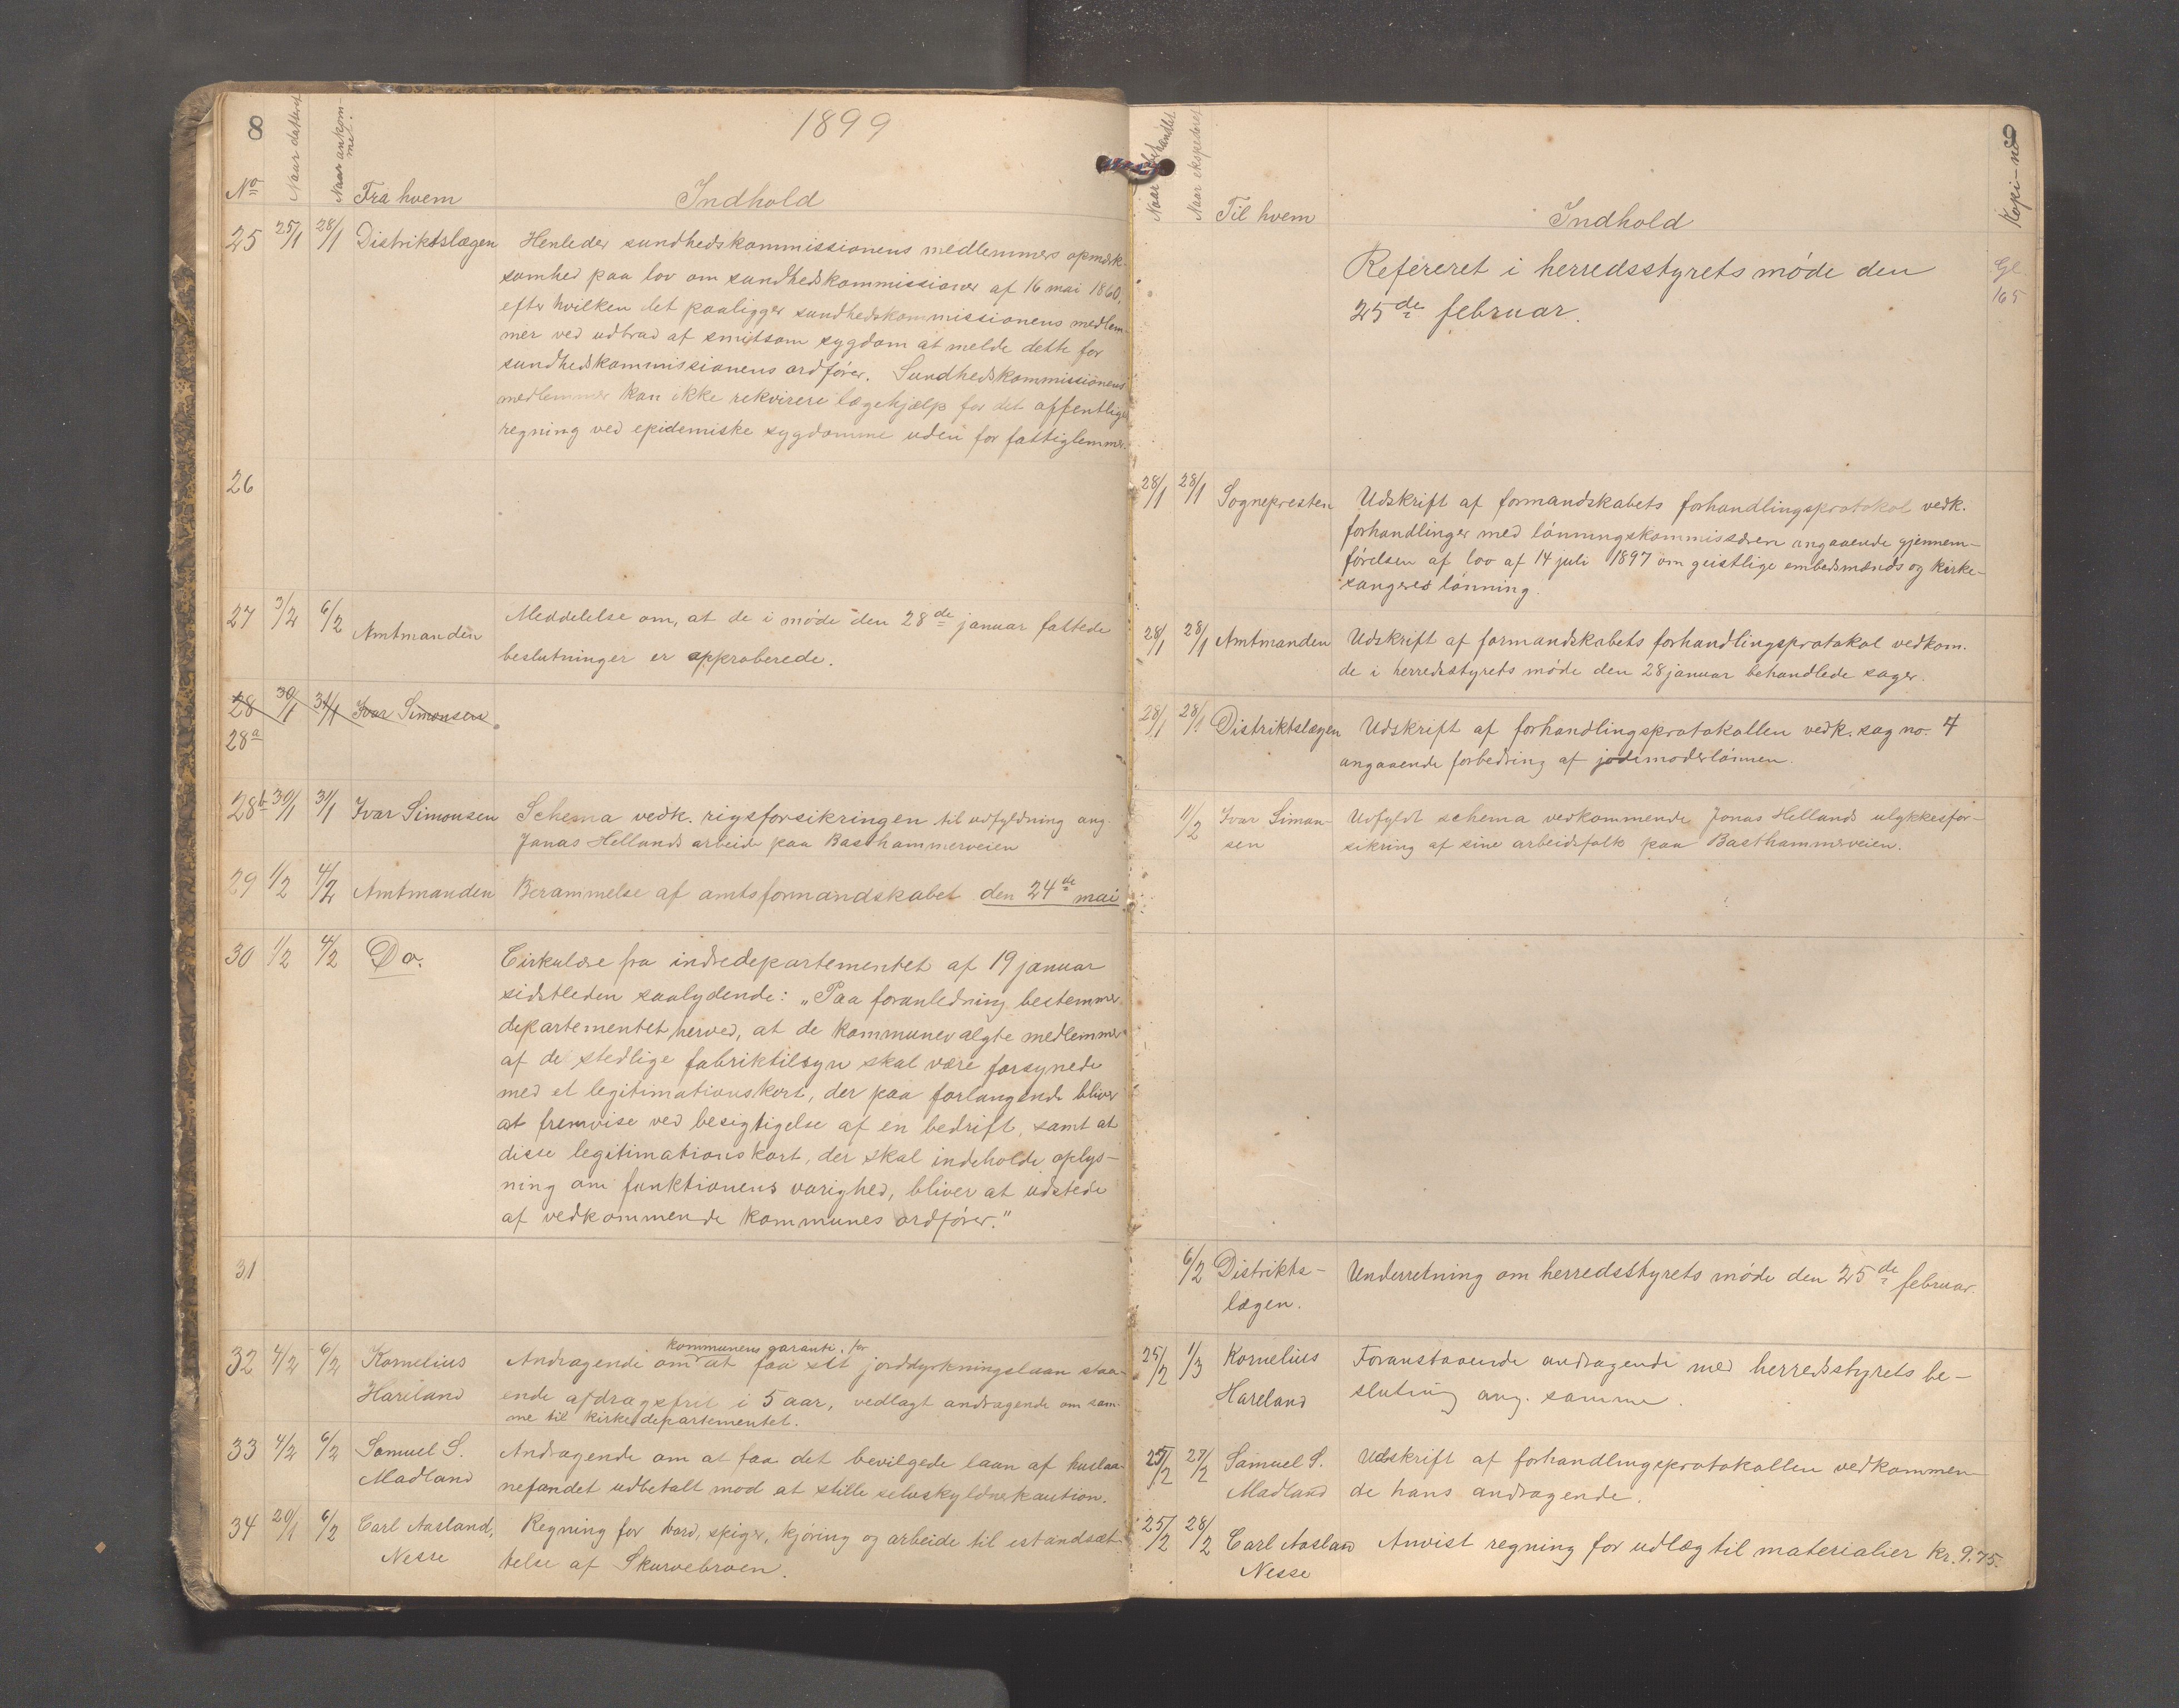 8
1899
No
Naar datteret
Naar ankommet.
Fra hvem
Indhold
25 25/1 28/1 Distriktslægen Henleder sundhedskommissionens medlemmers opmærk-
somhed paa lov om sundhedskommissioner af 16 mai 1860,
efter hvilken det paaligger sundhedskommissionens medlem-
mer ved udbrud af smitsom sygdom at melde dette for
sundhedskommissionens ordfører. Sundhedskommissionens
medlemmer kan ikke rekvirere lægehjælp for det offentliges
regning ved epidemiske sygdomme uden for fattiglemmer.
26
27 3/2 6/2 Amtmanden Meddelelse om, at de i møde den 28de januar fattede
beslutninger er approberede.
28 30/1 31/1 Ivar Simonsen
28a
28b 30/1 31/1 Ivar Simonsen Schema vedk. rigsforsikringen til udfyldning ang.
Jonas Hellands arbeide paa Basthammerveien
29 1/2 4/2 Amtmanden Berammelse af amtsformandskabet den 24de mai
30 1/2 4/2 Do. Cirkulære fra indredepartementet af 19 januar
sidstleden saalydende: „Paa foranledning bestemmer
departementet herved, at de kommunevalgte medlemmer
af de stedlige fabriktilsyn skal være forsynede
med et legitimationskort, der paa forlangende bliver
at fremvise ved besigtigelse af en bedrift, samt at
disse legitimationskort, der skal indeholde oplys-
ning om funktionens varighed, bliver at udstede
af vedkommende kommunes ordfører."
31
kommunens garanti for
32 4/2 6/2 Kornelius Andragende om at faa sit jorddyrkningslaan staa-
Hareland ende afdragsfrit i 5 aar, vedlagt andragende om sam-
me til kirkedepartementet.
33 4/2 6/2 Samuel S. Andragende om at faa det bevilgede laan af huslaa-
Madland nefondet udbetalt mod at stille selvskyldnerkaution.
34 20/1 6/2 Carl Aasland, Regning for bord, spiger, kjøring og arbeide til istandsæt-
Nesse telse af Skurvebroen.
8
Naar behandlet
Naar ekspederet
Til hvem
Indhold
Kopi-no
Refereret i herredsstyrets møde den
25de februar.
165
28/1 28/1 Sognepresten Udskrift af formandskabets forhandlingsprotokol vedk.
forhandlinger med lønningskommissæren angaaende gjennem-
førelsen af lov af 14 juli 1897 om geistlige embedsmænds og kirke-
sangeres lønning.
28/1 28/1 Amtmanden Udskrift af formandskabets forhandlingsprotokol vedkom.
de i herredsstyrets møde den 28 januar behandlede sager.
28/1 28/1 Distriktslægen Udskrift af forhandlingsprotokollen vedk. sag no. 4
angaaende forbedring af jodemoderlønnen.
11/2 Ivar Simon- Udfyldt schema vedkommende Jonas Hellands ulykkesfor-
sen sikring af sine arbeidsfolk paa Basthammerveien.
6/2 Distrikts- Underretning om herredsstyrets møde den 25de februar.
lægen.
25/2 1/3 Kornelius Foranstaaende andragende med herredsstyrets be-
Hareland slutning ang. samme.
25/2 27/2 Samuel S. Udskrift af forhandlingsprotokollen vedkommen-
Madland de hans andragende.
25/2 28/2 Carl Aasland Anvist regning for udlæg til materialier kr. 9.75.
Nesse